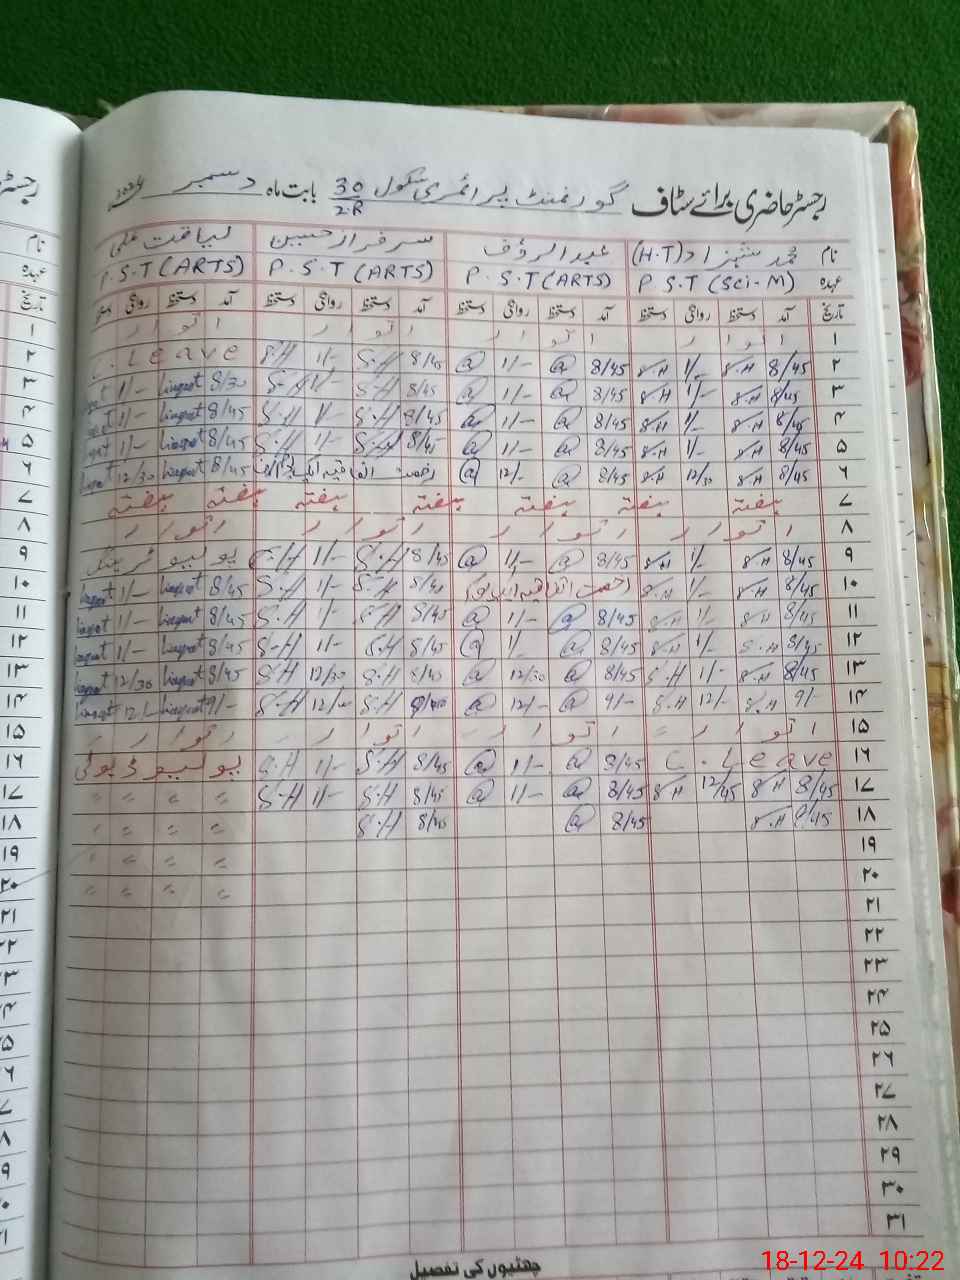 رجسٹر حاضری برائے سٹاف گورنمنٹ پرائمری سکول 30/2.R بابت ماہ دسمبر 2024
نام محمد شہزاد (H.T) عبدالرؤف سرفراز حسین لیاقت علی
عہدہ P.S.T (Sci-M) P.S.T (ARTS) P.S.T (ARTS) P.S.T (ARTS)
تاریخ آمد دستخط روانگی دستخط آمد دستخط روانگی دستخط آمد دستخط روانگی دستخط آمد دستخط روانگی
۱ اتوار اتوار اتوار اتوار
۲ 8/45 8.H 1/- 8.H 8/45 @ 1/- @ 8/45 S.H 1/- S.H C. Leave
۳ 8/45 8.H 1/- 8.H 8/45 @ 1/- @ 8/45 S.H 1/- S.H 8/30 Liaqat 1/-
۴ 8/45 8.H 1/- 8.H 8/45 @ 1/- @ 8/45 S.H 1/- S.H 8/45 Liaqat 1/-
۵ 8/45 8.H 1/- 8.H 8/45 @ 1/- @ 8/45 S.H 1/- S.H 8/45 Liaqat 1/-
۶ 8/45 8.H 12/30 8.H 8/45 @ 12/- @ رخصت اتفاقیہ 8/45 Liaqat 12/30
۷ ہفتہ ہفتہ ہفتہ ہفتہ ہفتہ ہفتہ ہفتہ
۸ اتوار اتوار اتوار اتوار
۹ 8/45 8.H 1/- 8.H 8/45 @ 1/- @ 8/45 S.H 1/- S.H پولیو ٹریننگ
۱۰ 8/45 8.H 1/- 8.H رخصت اتفاقیہ 8/45 S.H 1/- S.H 8/45 Liaqat 1/- Liaqat
۱۱ 8/45 8.H 1/- 8.H 8/45 @ 1/- @ 8/45 S.H 1/- S.H 8/45 Liaqat 1/- Liaqat
۱۲ 8/45 8.H 1/- 8.H 8/45 @ 1/- @ 8/45 S.H 1/- S.H 8/45 Liaqat 1/- Liaqat
۱۳ 8/45 8.H 1/- 8.H 8/45 @ 12/30 @ 8/45 S.H 12/30 S.H 8/45 Liaqat 12/30 Liaqat
۱۴ 9/- 8.H 12/- 8.H 9/- @ 12/- @ S.H S.H 9/- Liaqat 12/- Liaqat
۱۵ اتوار اتوار اتوار اتوار
۱۶ C. Leave 8/45 @ 1/- @ 8/45 S.H 1/- S.H پولیو ڈیوٹی
۱۷ 8/45 8.H 12/45 8.H 8/45 @ 1/- @ 8/45 S.H 1/- S.H 〃 〃 〃 〃
۱۸ 8/45 8.H 8/45 @ 8/45 S.H 〃 〃 〃 〃
۱۹ 〃 〃 〃 〃
۲۰ 〃 〃 〃 〃
۲۱
۲۲
۲۳
۲۴
۲۵
۲۶
۲۷
۲۸
۲۹
۳۰
۳۱
چھٹیوں کی تفصیل
18-12-24 10:22